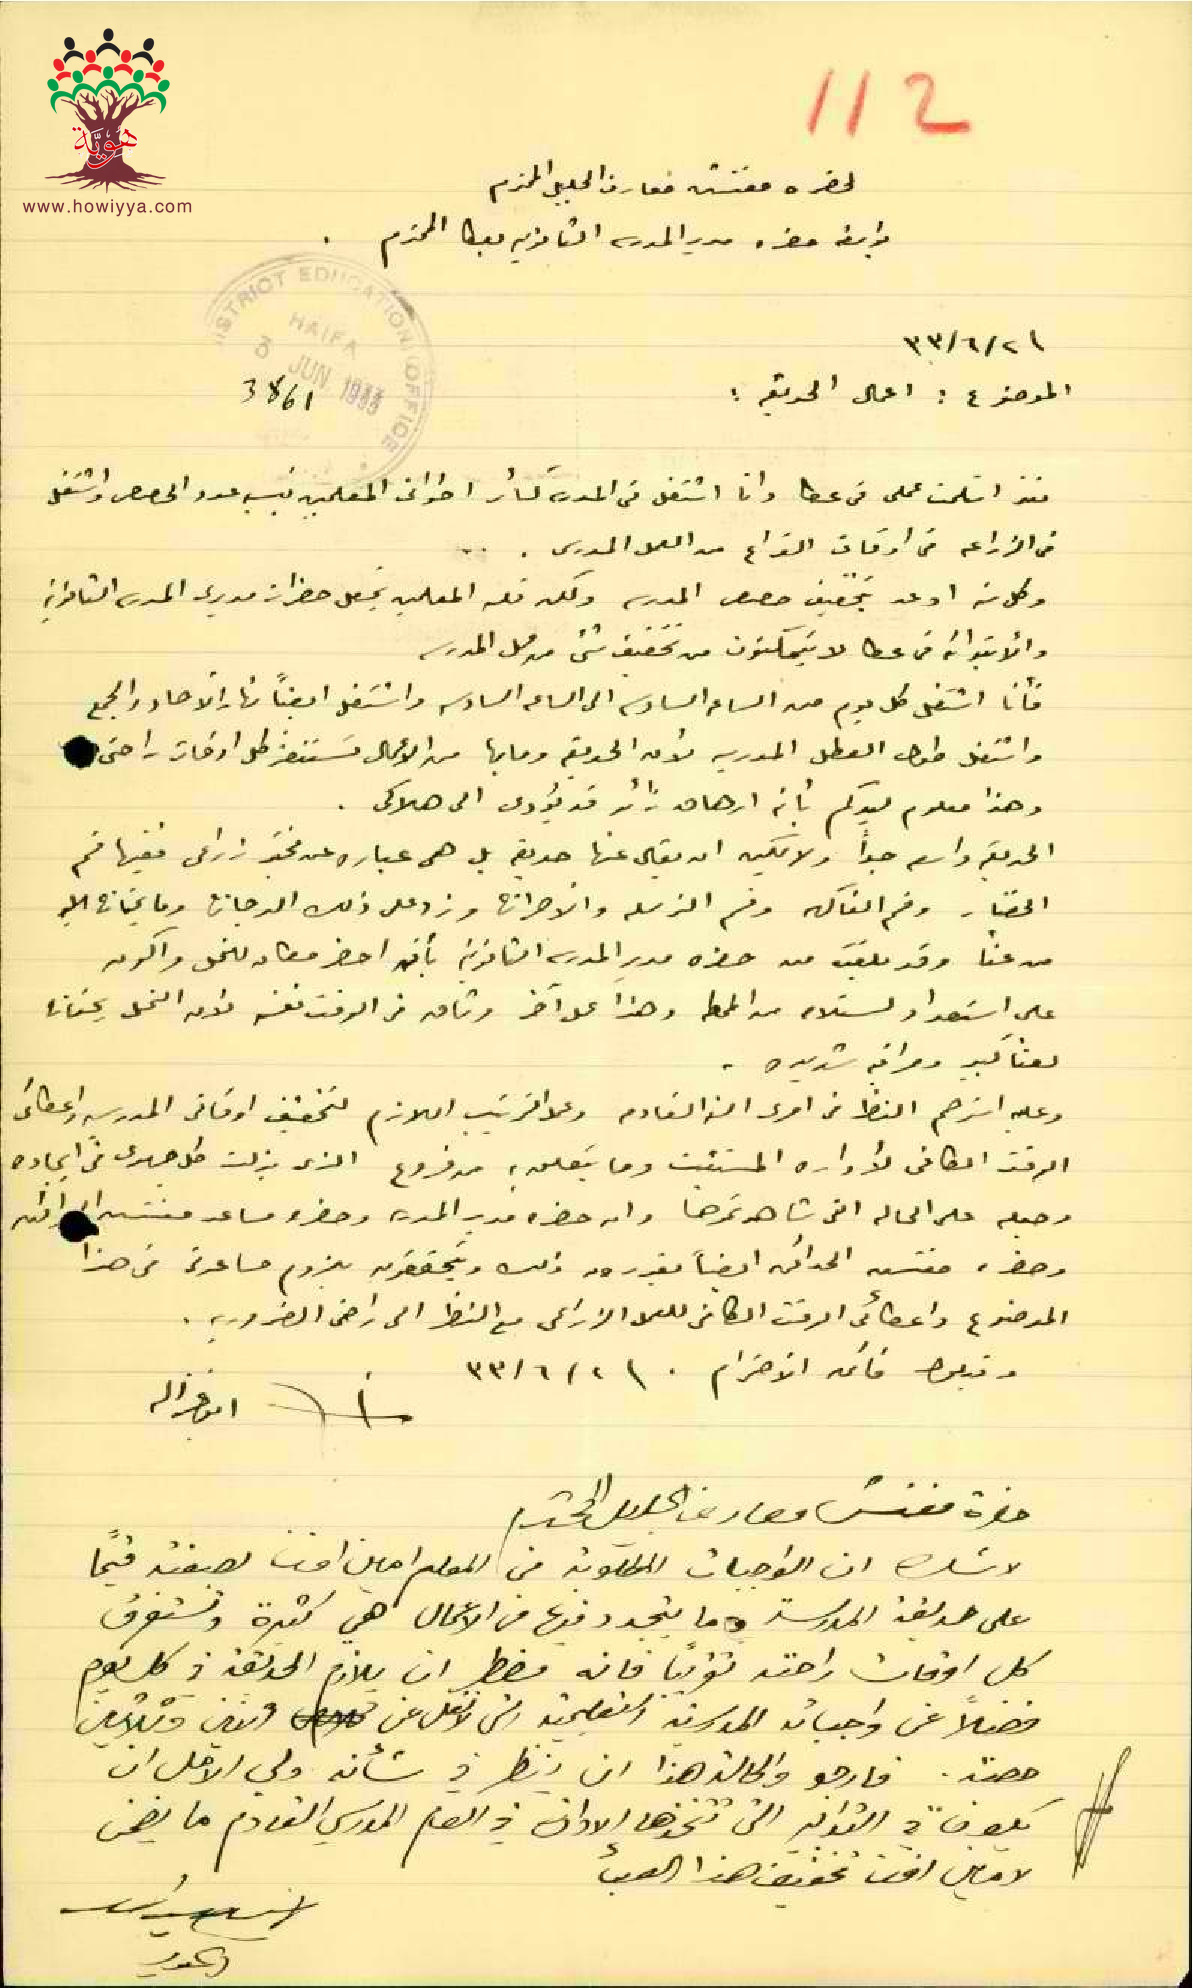 112
هويّة
www.howiyya.com
لحضرة مفتش معارف الجليل المحترم
بواسطة حضرة مدير المدرسة الثانوية بعكا المحترم .
DISTRICT EDUCATION OFFICE
HAIFA
3 JUN 1933
3861
٣٣/٦/٢١
الموضوع : اعمال الحديقة :
منذ استلمت عملي في عكا وانا اشتغل في المدرسة كسائر اخواني المعلمين بنسبة عدد الحصص واشتغل
في الزراعة في اوقات الفراغ من العمل المدرسي .
وكل سنة اوعد بتخفيف حصص المدرسة ولكن قلة المعلمين تجعل حضرات مديري المدرسة الثانوية
والابتدائية في عكا لا يتمكنون من تخفيف شئ من عمل المدرسة
فأنا اشتغل كل يوم من الساعة السادسة الى الساعة السادسة واشتغل ايضاً نهار الآحاد والجمع
واشتغل طول العطل المدرسية لأن الحديقة وما بها من الاعمال تستنفذ كل اوقات راحتي
وهذا معلوم لديكم بأنه ارهاق زائد قد يؤدي الى هلاكي .
الحديقة واسعة جداً ولا يمكن ان يقال عنها حديقة بل هي عبارة عن مختبر زراعي ففيها قسم
الخضار وقسم الفاكهة وقسم الزينة والاحراش وزد على ذلك الدجاج وما يحتاج اليه
من عناء وقد بلغت من حضرة مدير المدرسة الثانوية بأن احضر مكان للنحل واكون
على استعداد لاستلامه من المحطة وهذا عمل آخر وشاق في الوقت نفسه لأن النحل يحتاج
لعناء كبير ومراقبة شديدة .
وعليه استرحم النظر في امري السنة القادمة وعمل الترتيب اللازم لتخفيف اوقاتي المدرسية واعطائي
الوقت الكافي لأدارة المستنبت وما يتعلق به من فروع الذي بذلت كل جهدي في ايجاده
وجعله على الحالة التي تشاهدونها وان حضرة مدير المدرسة وحضرة مساعد مفتش الحدائق
وحضرة مفتش الحدائق ايضاً يقدرون ذلك ويتحققون بلزوم مساعدتي في هذا
الموضوع واعطائي الوقت الكافي للعمل الزراعي مع النظر الى راحتي الضرورية .
وتفضلوا فائق الاحترام . ٣٣/٦/٢١
ابو غزاله
حضرة مفتش معارف الجليل المحترم
لا شك ان الواجبات المطلوبة من المعلم امين افندي بصفته قيّماً
على حديقة المدرسة وما يتجدد فيها من الاعمال هي كثيرة وتستغرق
كل اوقات راحته تقريباً فانه مضطر ان يلازم الحديقة في كل يوم
فضلاً عن واجباته المدرسية التعليمية التي لا تقل عن اثنين وثلاثين
حصة . فارجو والحالة هذه ان ينظر في شأنه ولي الامل ان
يكون في التدابير التي تتخذها الادارة في العام المدرسي القادم ما يضمن
لامين افندي تخفيف هذا العبء